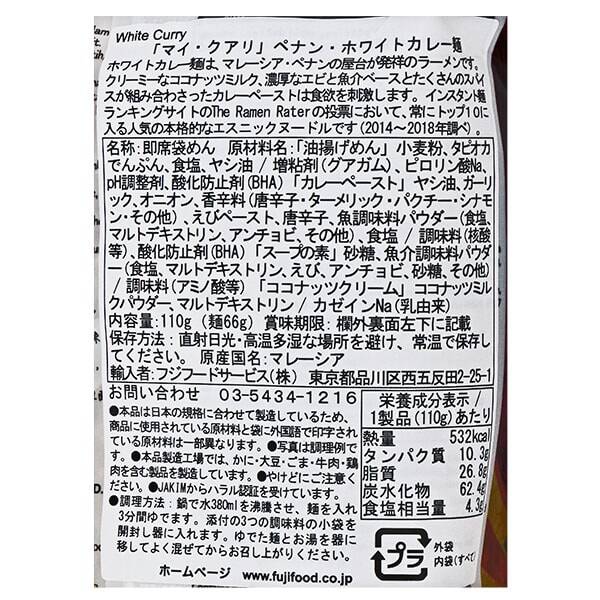 White Curry
「マイ・クアリ」ペナン・ホワイトカレー麺
ホワイトカレー麺は、マレーシア・ペナンの屋台が発祥のラーメンです。
クリーミーなココナッツミルク、濃厚なエビと魚介ベースとたくさんのスパイ
スが組み合わさったカレーペーストは食欲を刺激します。インスタント麺
ランキングサイトのThe Ramen Raterの投票において、常にトップ10に
入る人気の本格的なエスニックヌードルです(2014～2018年調べ)。
名称:即席袋めん 原材料名:「油揚げめん」小麦粉、タピオカ
でんぷん、食塩、ヤシ油 / 増粘剤(グアガム)、ピロリン酸Na、
pH調整剤、酸化防止剤(BHA)「カレーペースト」ヤシ油、ガーリ
ック、オニオン、香辛料(唐辛子・ターメリック・パクチー・シナモ
ン・その他)、えびペースト、唐辛子、魚調味料パウダー(食塩、
マルトデキストリン、アンチョビ、その他)、食塩 / 調味料(核酸
等)、酸化防止剤(BHA)「スープの素」砂糖、魚介調味料パウダ
ー(食塩、マルトデキストリン、えび、アンチョビ、砂糖、その他)
/ 調味料(アミノ酸等)「ココナッツクリーム」ココナッツミル
クパウダー、マルトデキストリン / カゼインNa(乳由来)
内容量:110g(麺66g) 賞味期限:欄外裏面左下に記載
保存方法:直射日光・高温多湿な場所を避け、常温で保存し
てください。 原産国名:マレーシア
輸入者:フジフードサービス(株) 東京都品川区西五反田2-25-1
お問い合わせ 03-5434-1216
●本品は日本の規格に合わせて製造しているため、
商品に使用されている原材料と袋に外国語で印字され
ている原材料は一部異なります。●写真は調理例で
す。●本品製造工場では、かに・大豆・ごま・牛肉・鶏
肉を含む製品を製造しています。●やけどにご注意く
ださい。●JAKIMからハラル認証を受けています。
●調理方法:鍋で水380mlを沸騰させ、麺を入れ
3分間ゆでます。添付の3つの調味料の小袋を
開封し器に入れます。ゆでた麺とお湯を器に
移してよく混ぜてからお召し上がりください。
ホームページ www.fujifood.co.jp
栄養成分表示 /
1製品(110g)あたり
熱量 532kcal
タンパク質 10.3g
脂質 26.8g
炭水化物 62.4g
食塩相当量 4.3g
プラ
外袋
内袋(すべて)